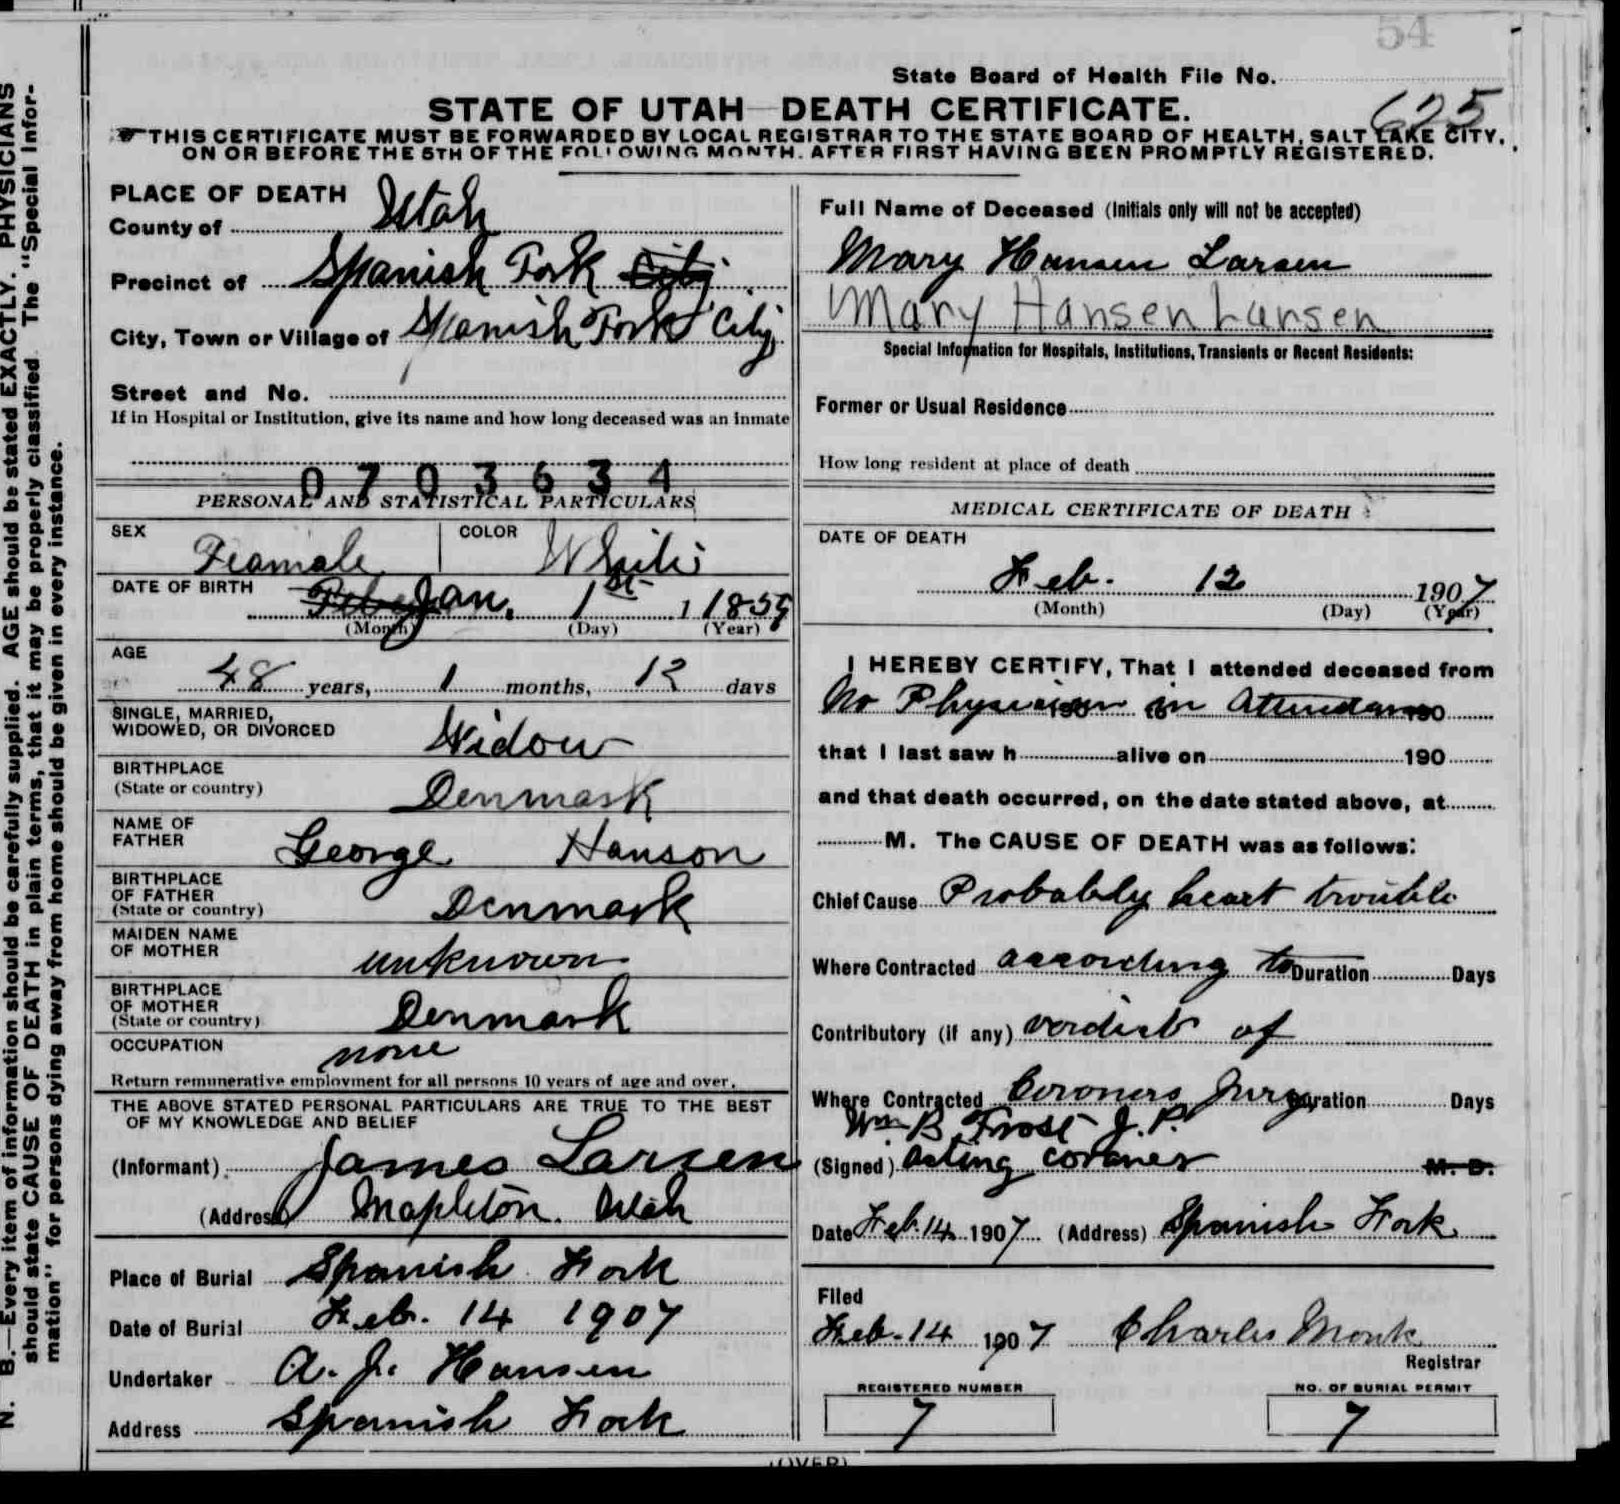 54
State Board of Health File No.
625
STATE OF UTAH DEATH CERTIFICATE.
THIS CERTIFICATE MUST BE FORWARDED BY LOCAL REGISTRAR TO THE STATE BOARD OF HEALTH, SALT LAKE CITY,
ON OR BEFORE THE 5TH OF THE FOLLOWING MONTH. AFTER FIRST HAVING BEEN PROMPTLY REGISTERED.
PLACE OF DEATH
County of Utah
Precinct of Spanish Fork City
City, Town or Village of Spanish Fork City
Street and No.
If in Hospital or Institution, give its name and how long deceased was an inmate
0703634
PERSONAL AND STATISTICAL PARTICULARS
SEX Feamale COLOR White
DATE OF BIRTH Jan. 1st 1 1859
(Month) (Day) (Year)
AGE
48 years, 1 months, 12 days
SINGLE, MARRIED,
WIDOWED, OR DIVORCED Widow
BIRTHPLACE
(State or country) Denmark
NAME OF
FATHER George Hanson
BIRTHPLACE
OF FATHER
(State or country) Denmark
MAIDEN NAME
OF MOTHER unknown
BIRTHPLACE
OF MOTHER
(State or country) Denmark
OCCUPATION none
Return remunerative employment for all persons 10 years of age and over.
THE ABOVE STATED PERSONAL PARTICULARS ARE TRUE TO THE BEST
OF MY KNOWLEDGE AND BELIEF
(Informant) James Larsen
(Address) Mapleton. Utah
Place of Burial Spanish Fork
Date of Burial Feb. 14 1907
Undertaker A. J. Hansen
Address Spanish Fork
Full Name of Deceased (Initials only will not be accepted)
Mary Hansen Larsen
Mary Hansen Larsen
Special Information for Hospitals, Institutions, Transients or Recent Residents:
Former or Usual Residence
How long resident at place of death
MEDICAL CERTIFICATE OF DEATH
DATE OF DEATH
Feb. 12 1907
(Month) (Day) (Year)
I HEREBY CERTIFY, That I attended deceased from
No Physician in Attendance 190
that I last saw h alive on 190
and that death occurred, on the date stated above, at
M. The CAUSE OF DEATH was as follows:
Chief Cause Probably heart trouble
Where Contracted according to Duration Days
Contributory (if any) verdict of
Where Contracted Coroners Jury Duration Days
Wm B Frost J. P.
(Signed) Acting coroner M. D.
Date Feb. 14 1907 (Address) Spanish Fork
Filed
Feb. 14 1907 Charles Monk
Registrar
REGISTERED NUMBER
7
NO. OF BURIAL PERMIT
7
(OVER)
N. B.—Every item of information should be carefully supplied. AGE should be stated EXACTLY. PHYSICIANS
should state CAUSE OF DEATH in plain terms, that it may be properly classified. The "Special Infor-
mation" for persons dying away from home should be given in every instance.